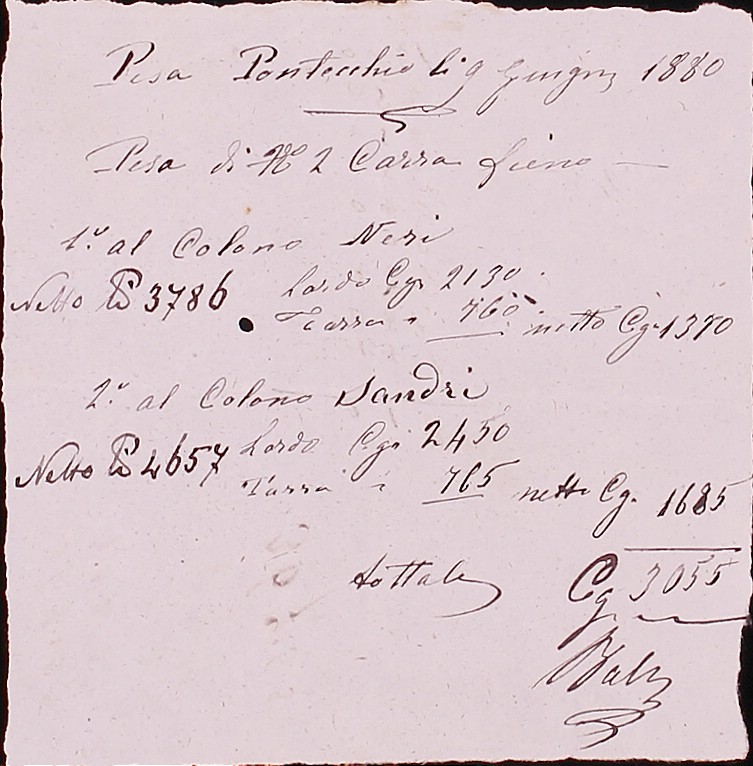 Pesa Pontecchio li 9 Giugno 1880
Pesa di No 2 Carra fieno —
1.o al Colono Neri
Netto 3786 Lordo Cgi 2130
Tarra " 760 netto Cg. 1370
2.o al Colono Sandri
Netto 4657 Lordo Cgi 2450
Tarra " 765 netto Cg. 1685
tottale Cg 3055